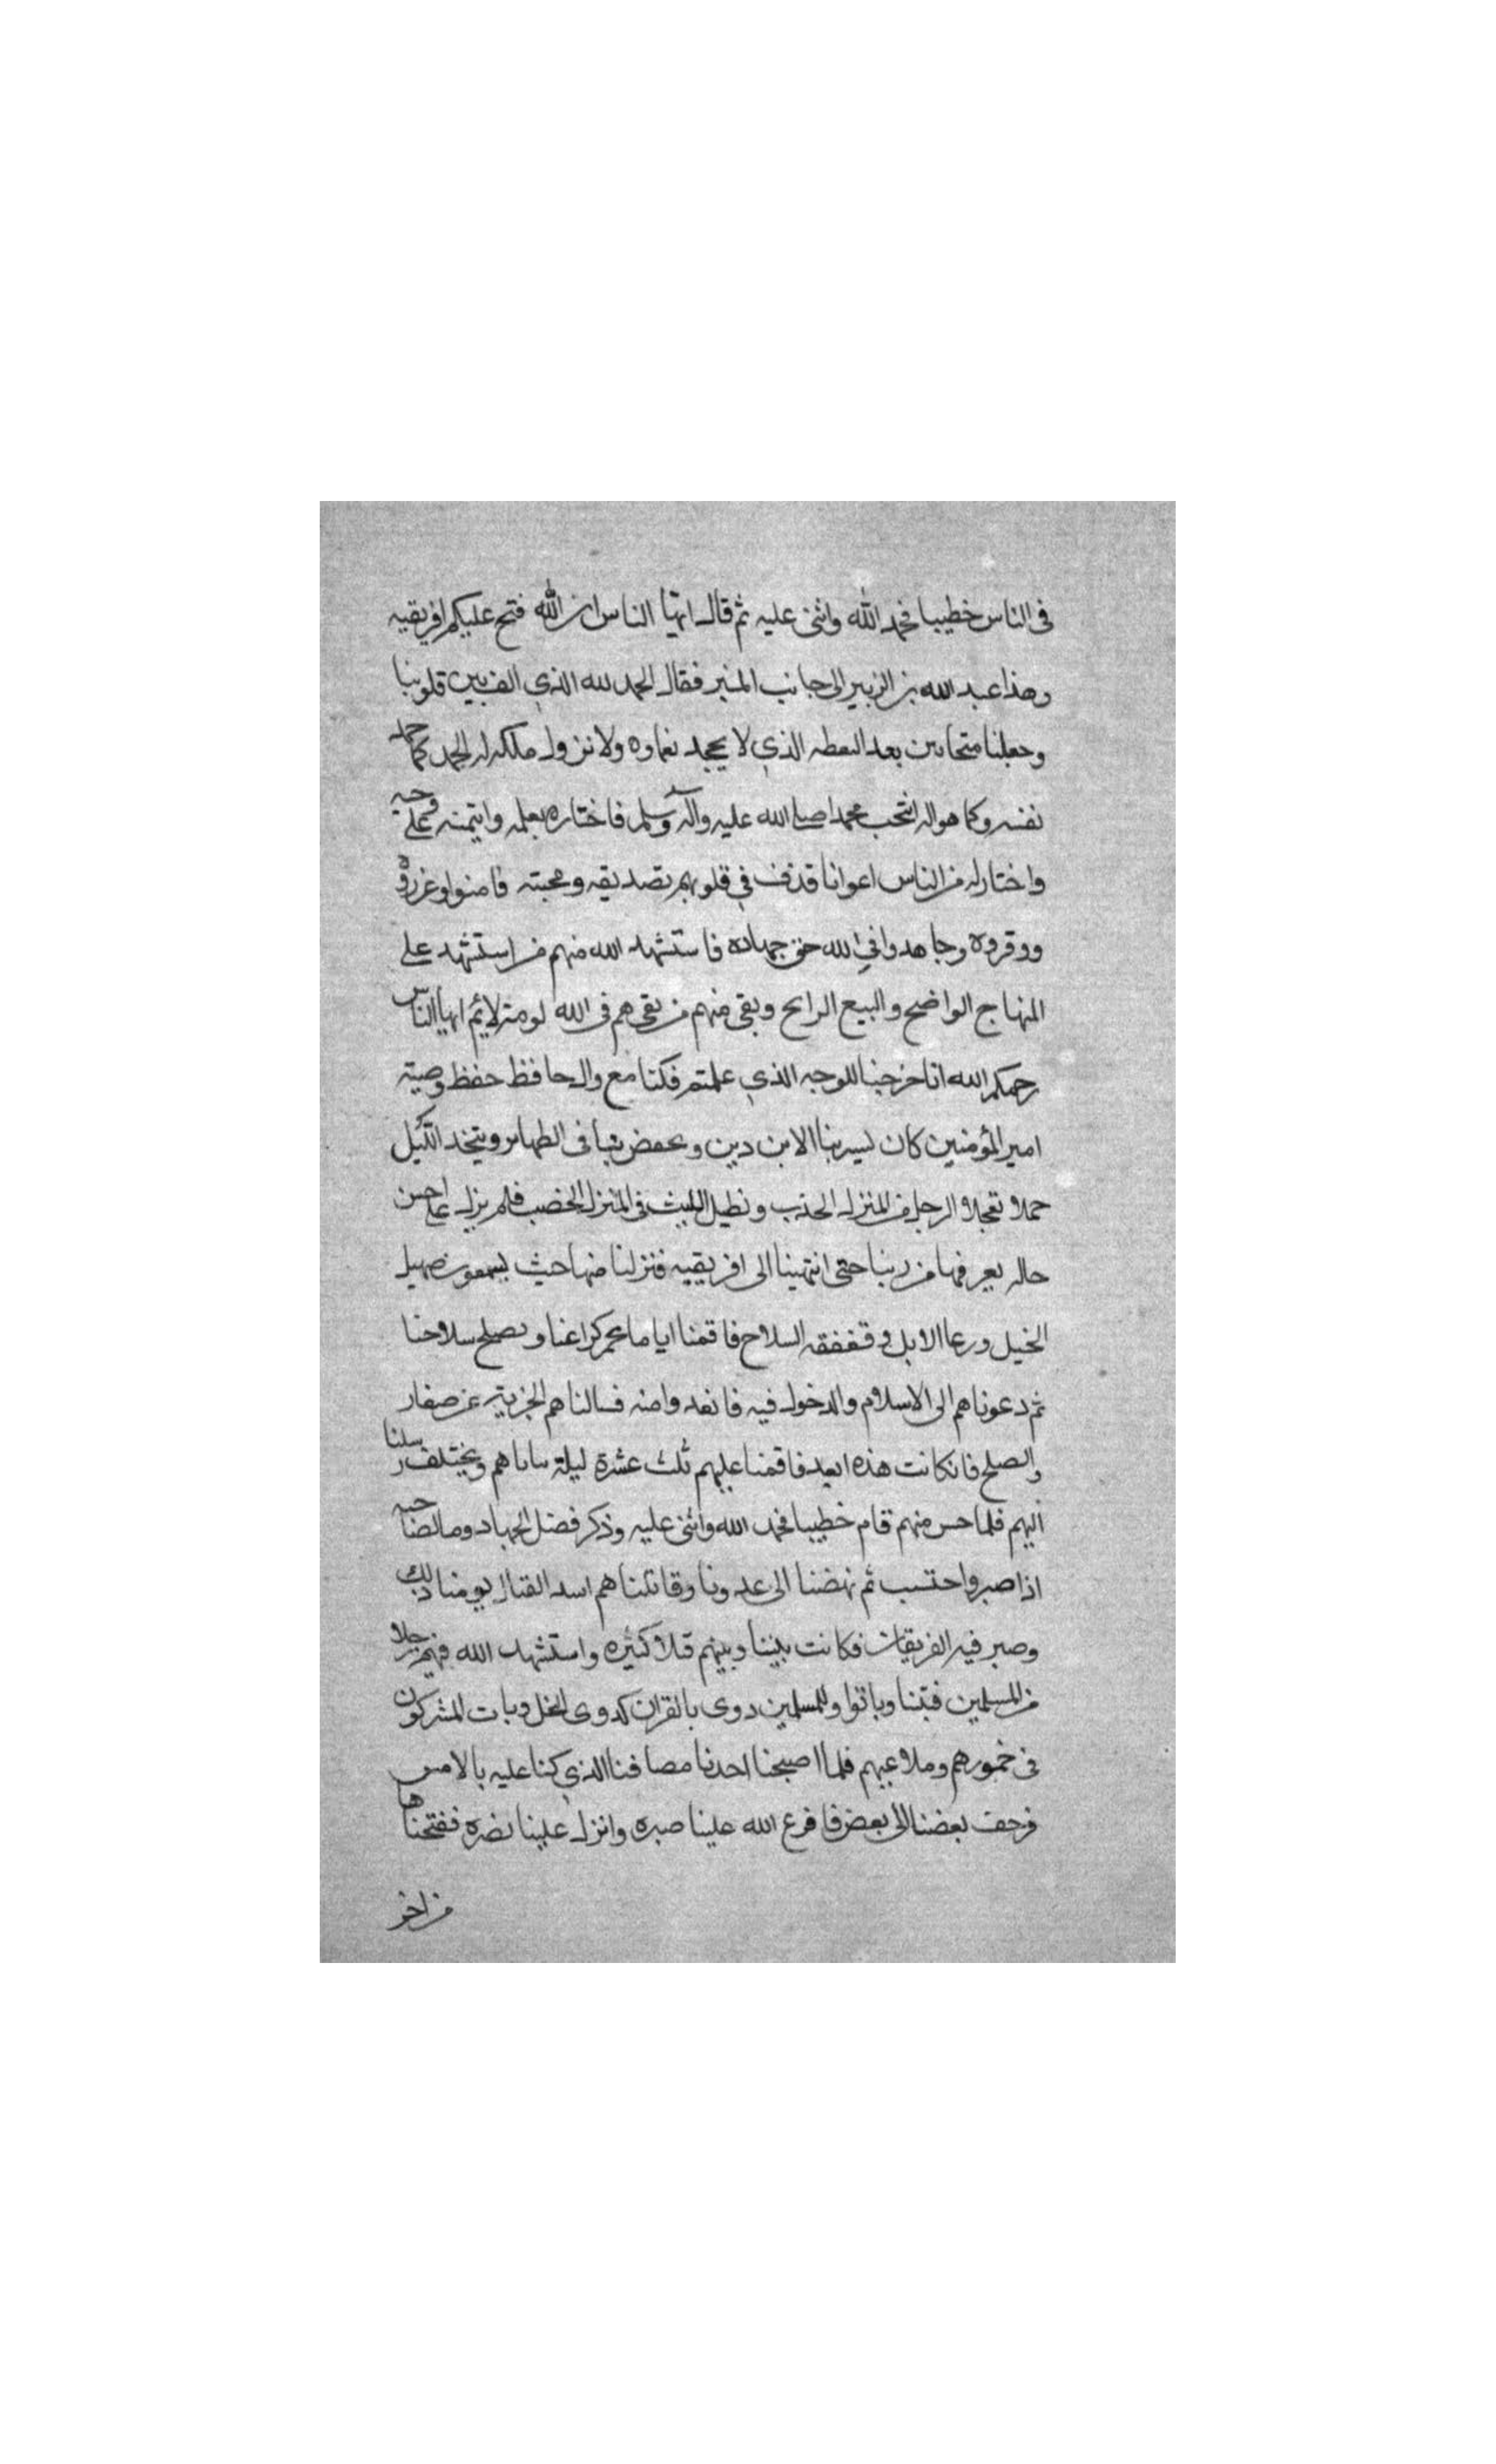 في الناس خطيبا فحمد الله واثنى عليه ثم قال ايها الناس ان الله فتح عليكم افريقيه
وهذا عبد الله بن الزبير الى جانب المنبر فقال الحمد لله الذي الف بين قلوبنا
وجعلنا متحابين بعد البغضه الذي لا يجحد نعماوه ولا نزول ملكه له الحمد كما حمد
نفسه وكما هو اله انتخب محمدا صلى الله عليه وآله وسلم فاختاره بعلمه وايتمنه على وحيه
واختار له من الناس اعوانا قذف في قلوبهم تصديقه ومحبته فامنوا وعزروه
ووقروه وجاهدوا في الله حق جهاده فاستشهد الله منهم من استشهد على
المنهاج الواضح والبيع الرابح وبقي منهم من بقي هم في الله لومة لائم ايها الناس
رحمكم الله انا خرجنا للوجه الذي علمتم فكنا مع وال حافظ حفظ وصية
امير المؤمنين كان يسير بنا الابردين ويخفض بنا في الطهاير ويتخذ الليل
حملا تعجلا الرجل من المنزل الجذب ونطيل اللبث في المنزل الخصب فلم يزل على احسن
حاله يعرفها من ربنا حتى انتهينا الى افريقيه فنزلنا منها حيث يسمعون صهيل
الخيل ورعا الابل وقعقعه السلاح فاقمنا اياما نجم كراعنا ونصلح سلاحنا
ثم دعوناهم الى الاسلام والدخول فيه فابعدوا منه فسالناهم الجزية عن صغار
والصلح فانكانت هذه ابعد فاقمنا عليهم ثلث عشرة ليلة نتاناهم ويختلف رسلنا
اليهم فلما حس منهم قام خطيبا فحمد الله واثنى عليه وذكر فضل الجهاد وما لصاحبه
اذا صبر واحتسب ثم نهضنا الى عدونا وقاتلناهم اسد القتال يومنا ذلك
وصبر فيه الفريقان فكانت بيننا وبينهم قتلا كثيره واستشهد الله فيهم رجلا
من المسلمين فبتنا وباتوا وللمسلمين دوى بالقران كدوى النحل وبات المشركون
في خمورهم وملاعبهم فلما اصبحنا اخذنا مصافنا الذي كنا عليه بالامس
فزحف بعضنا الى بعض فافرغ الله علينا صبره وانزل علينا نصره ففتحناها
من اخر